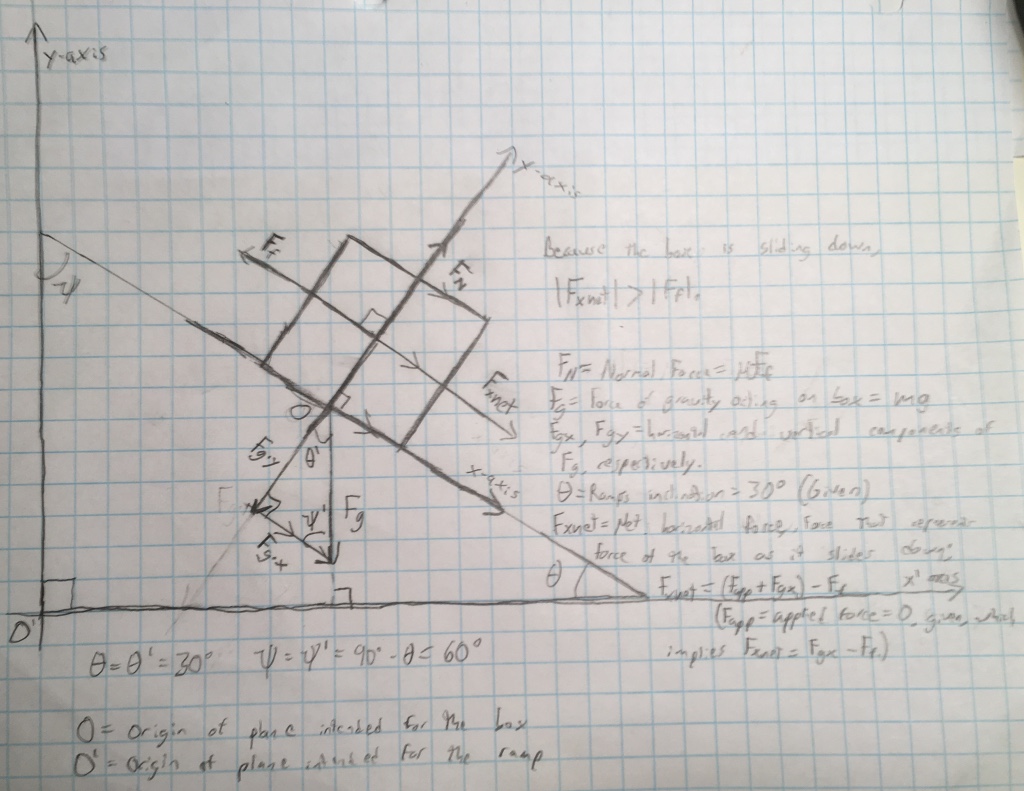 y-axis
x-axis
Ff
FN
ψ
Because the box is sliding down,
|Fxnet| > |Ff|.
Fxnet
FN = Normal Force = μFf
O
Fg = Force of gravity acting on box = mg
Fgy
θ'
Fgx, Fgy = horizontal and vertical components of
Fg, respectively.
x-axis
θ = Ramps inclination = 30° (Given)
ψ'
Fg
Fxnet = Net horizontal force, force that
Fgx
force of the box as it slides down:
θ
Fxnet = (Fapp + Fgx) - Ff
x' axis
O'
(Fapp = applied force = 0, given, which
implies Fxnet = Fgx - Ff.)
θ = θ' = 30° ψ = ψ' = 90° - θ = 60°
O = Origin of plane intended for the box
O' = Origin of plane intended for the ramp